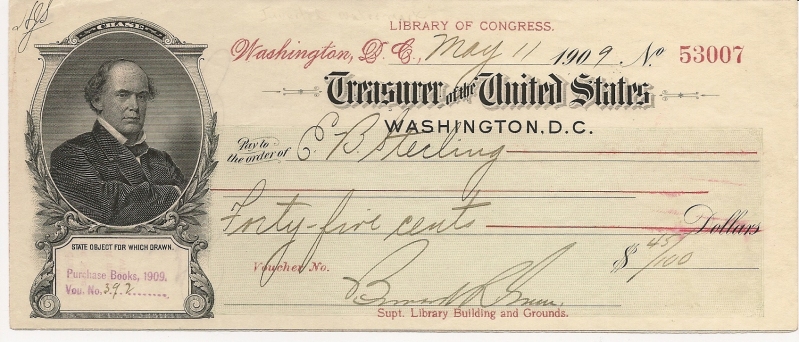 CHASE
LIBRARY OF CONGRESS.
Washington, D. C., May 11 1909. No. 53007
Treasurer of the United States
WASHINGTON, D.C.
Pay to the order of E. B. Sterling
Forty-five cents Dollars
STATE OBJECT FOR WHICH DRAWN.
Purchase Books, 1909.
Vou. No. 392
Voucher No.
$ 45/100
Bernard R. Green.
Supt. Library Building and Grounds.